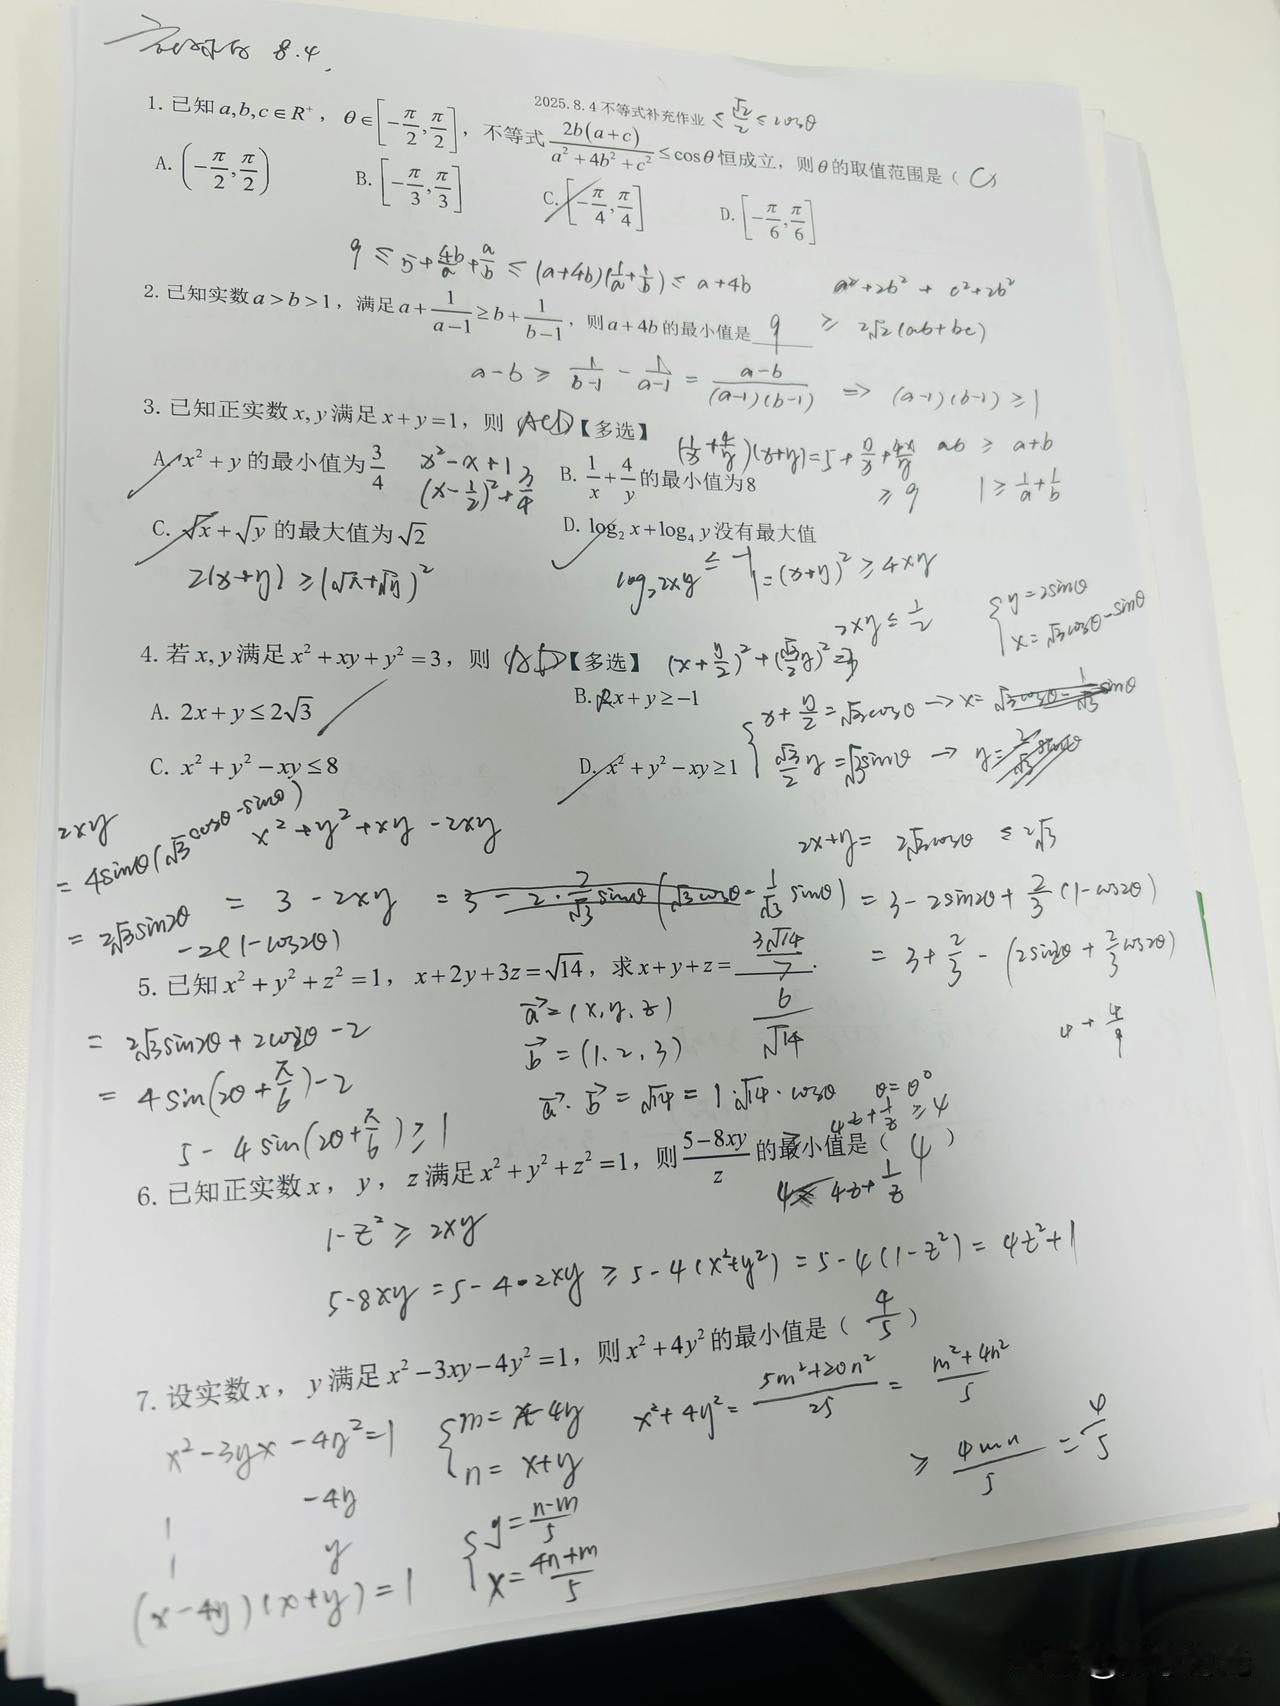 8.4
2025.8.4 不等式补充作业 ≤ √2/2 ≤ cosθ
1. 已知 a,b,c∈R⁺，θ∈[-π/2, π/2]，不等式 2b(a+c)/(a²+4b²+c²) ≤ cosθ 恒成立，则θ的取值范围是（ C ）
A. (-π/2, π/2) B. [-π/3, π/3] C. [-π/4, π/4] D. [-π/6, π/6]
9 ≤ 5+4b/a+a/b ≤ (a+4b)(1/a+1/b) ≤ a+4b
a²+2b² + c²+2b²
2. 已知实数 a>b>1，满足 a+1/(a-1) ≥ b+1/(b-1)，则 a+4b 的最小值是 9
≥ 2√2(ab+bc)
a-b ≥ 1/(b-1) - 1/(a-1) = (a-b)/((a-1)(b-1)) ⇒ (a-1)(b-1) ≥ 1
3. 已知正实数 x,y 满足 x+y=1，则（ACD）【多选】
(1/x+4/y)(x+y)=5+y/x+4x/y
ab ≥ a+b
A. x²+y 的最小值为 3/4
x²-x+1
(x-1/2)²+3/4
B. 1/x+4/y 的最小值为8
≥ 9
1 ≥ 1/a+1/b
C. √x+√y 的最大值为√2
D. log₂x+log₄y 没有最大值
2(x+y) ≥ (√x+√y)²
log₂2xy ≤ -1
1=(x+y)² ≥ 4xy
2xy ≤ 1/2
y=2sinθ
x=√3cosθ-sinθ
4. 若 x,y 满足 x²+xy+y²=3，则（AD）【多选】
(x+y/2)²+(√3/2 y)²=3
A. 2x+y ≤ 2√3
B. 2x+y ≥ -1
C. x²+y²-xy ≤ 8
D. x²+y²-xy ≥ 1
x+y/2=√3cosθ → x=√3cosθ-1/√3 sinθ
√3/2 y=√3sinθ → y=2/√3 sinθ
2xy
=4sinθ(√3cosθ-sinθ)
x²+y²+xy-2xy
2x+y= 2√3cosθ ≤ 2√3
= 3-2xy = 3-2·2/√3 sinθ(√3cosθ-1/√3 sinθ) = 3-2sin2θ+2/3(1-cos2θ)
= 2√3sin2θ
-2(1-cos2θ)
= 3+2/3-(2sin2θ+2/3cos2θ)
5. 已知 x²+y²+z²=1，x+2y+3z=√14，求 x+y+z= 3√14/7 .
6/√14
4+4/9
= 2√3sin2θ+2cos2θ-2
a⃗=(x,y,z)
b⃗=(1,2,3)
= 4sin(2θ+π/6)-2
a⃗·b⃗=√14=1·√14·cosθ θ=0°
5-4sin(2θ+π/6) ≥ 1
4z+1/z ≥ 4
6. 已知正实数 x，y，z 满足 x²+y²+z²=1，则 (5-8xy)/z 的最小值是（ 4 ）
4≤ 4z+1/z
1-z² ≥ 2xy
5-8xy=5-4·2xy ≥ 5-4(x²+y²)=5-4(1-z²)=4z²+1
7. 设实数 x，y 满足 x²-3xy-4y²=1，则 x²+4y² 的最小值是（ 4/5 ）
x²-3yx-4y²=1
m=x-4y
n=x+y
x²+4y²=(5m²+20n²)/25=(m²+4n²)/5
≥ 4mn/5 = 4/5
1 -4y
1 y
y=(n-m)/5
x=(4n+m)/5
(x-4y)(x+y)=1